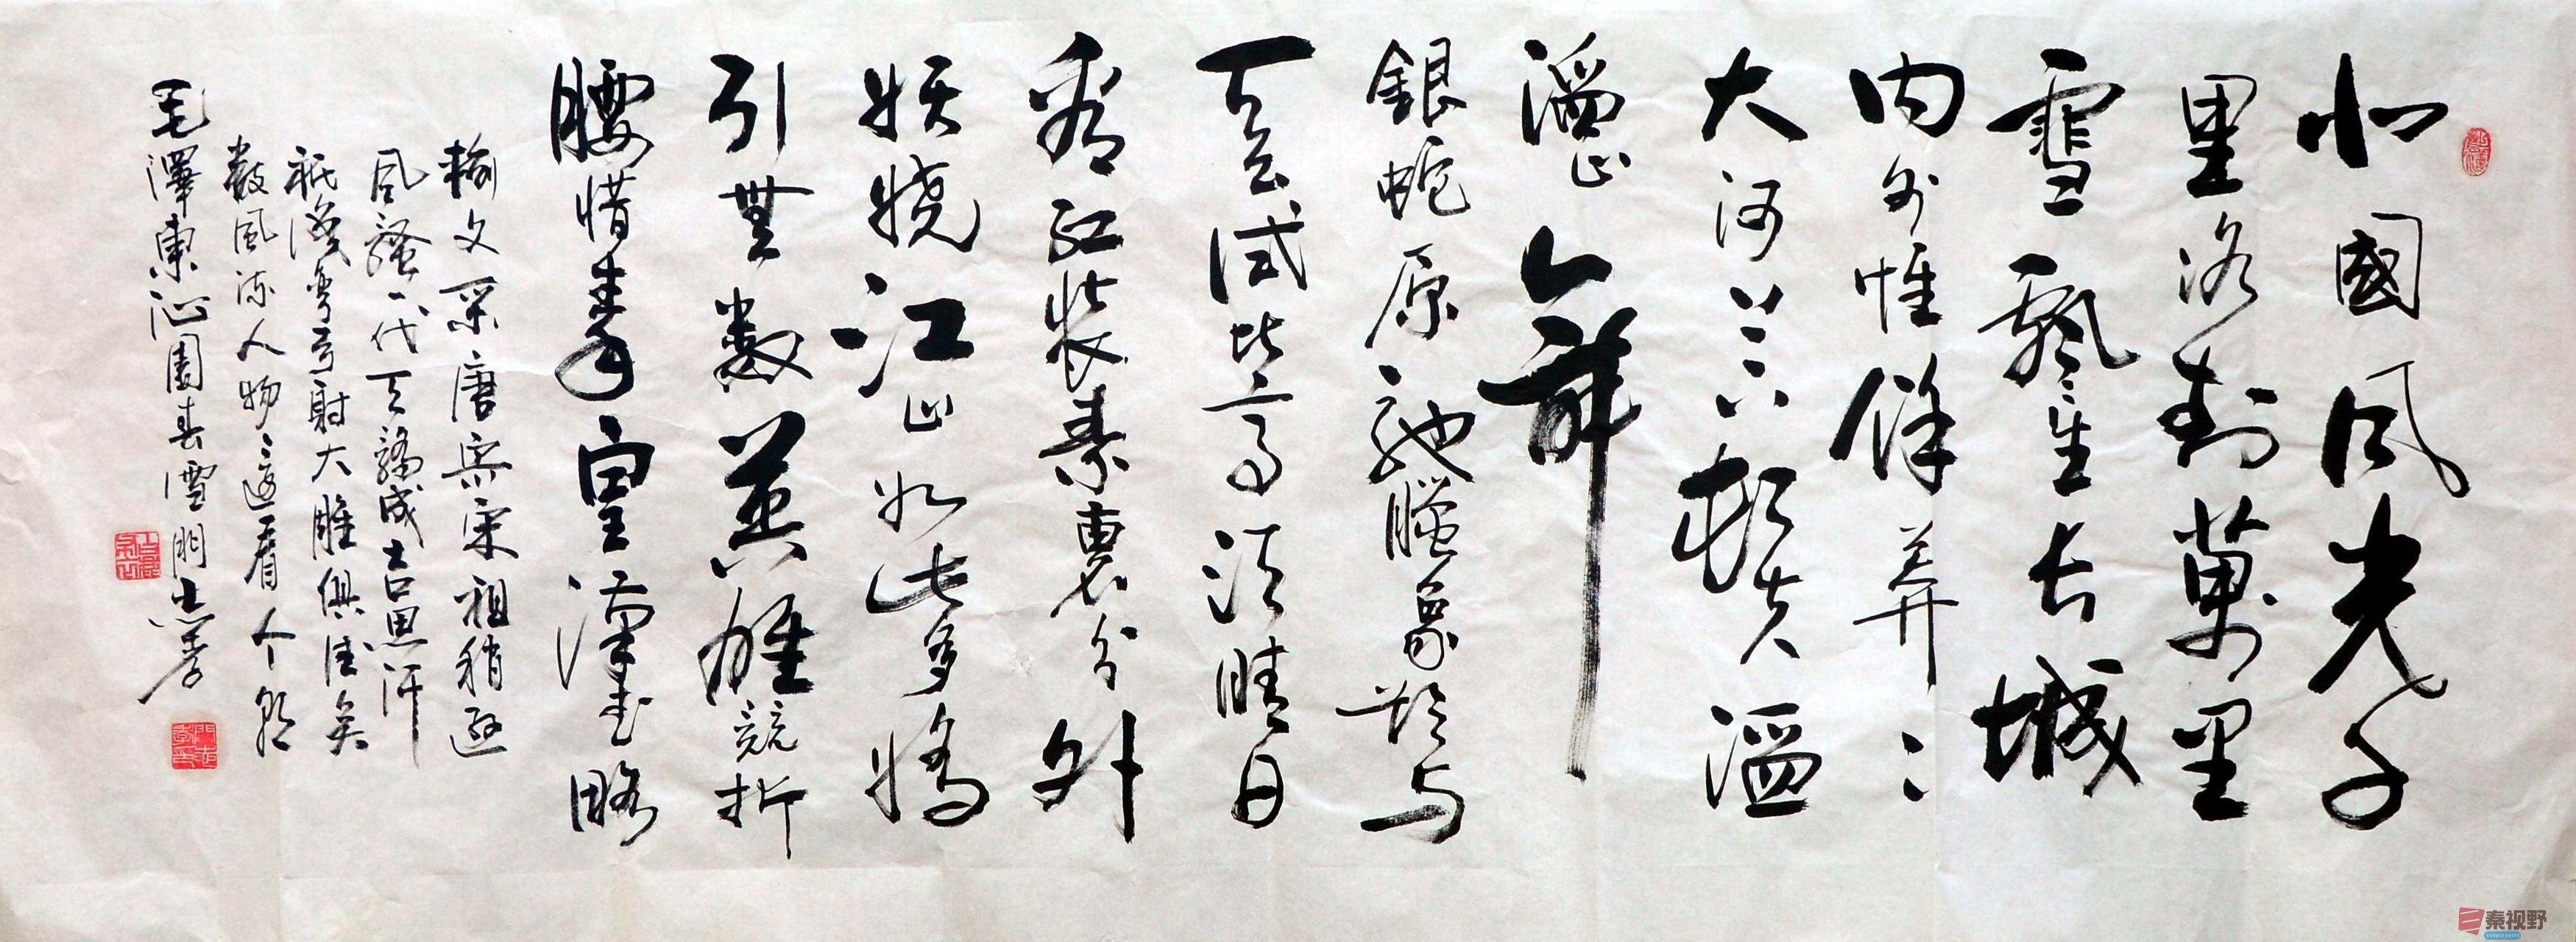 北國風光千
里冰封萬里
雪飄望长城
内外惟餘莽〻
大河上下頓失滔
滔山舞
銀蛇原馳臘象欲与
天公試比高須晴日
看紅裝素裹分外
妖嬈江山如此多嬌
引無數英雄競折
腰惜秦皇漢武略
輸文采唐宗宋祖稍遜
風騷一代天驕成吉思汗
衹識彎弓射大雕俱往矣
數風流人物〻還看今朝
毛澤東沁園春雪門志孝
秦视野